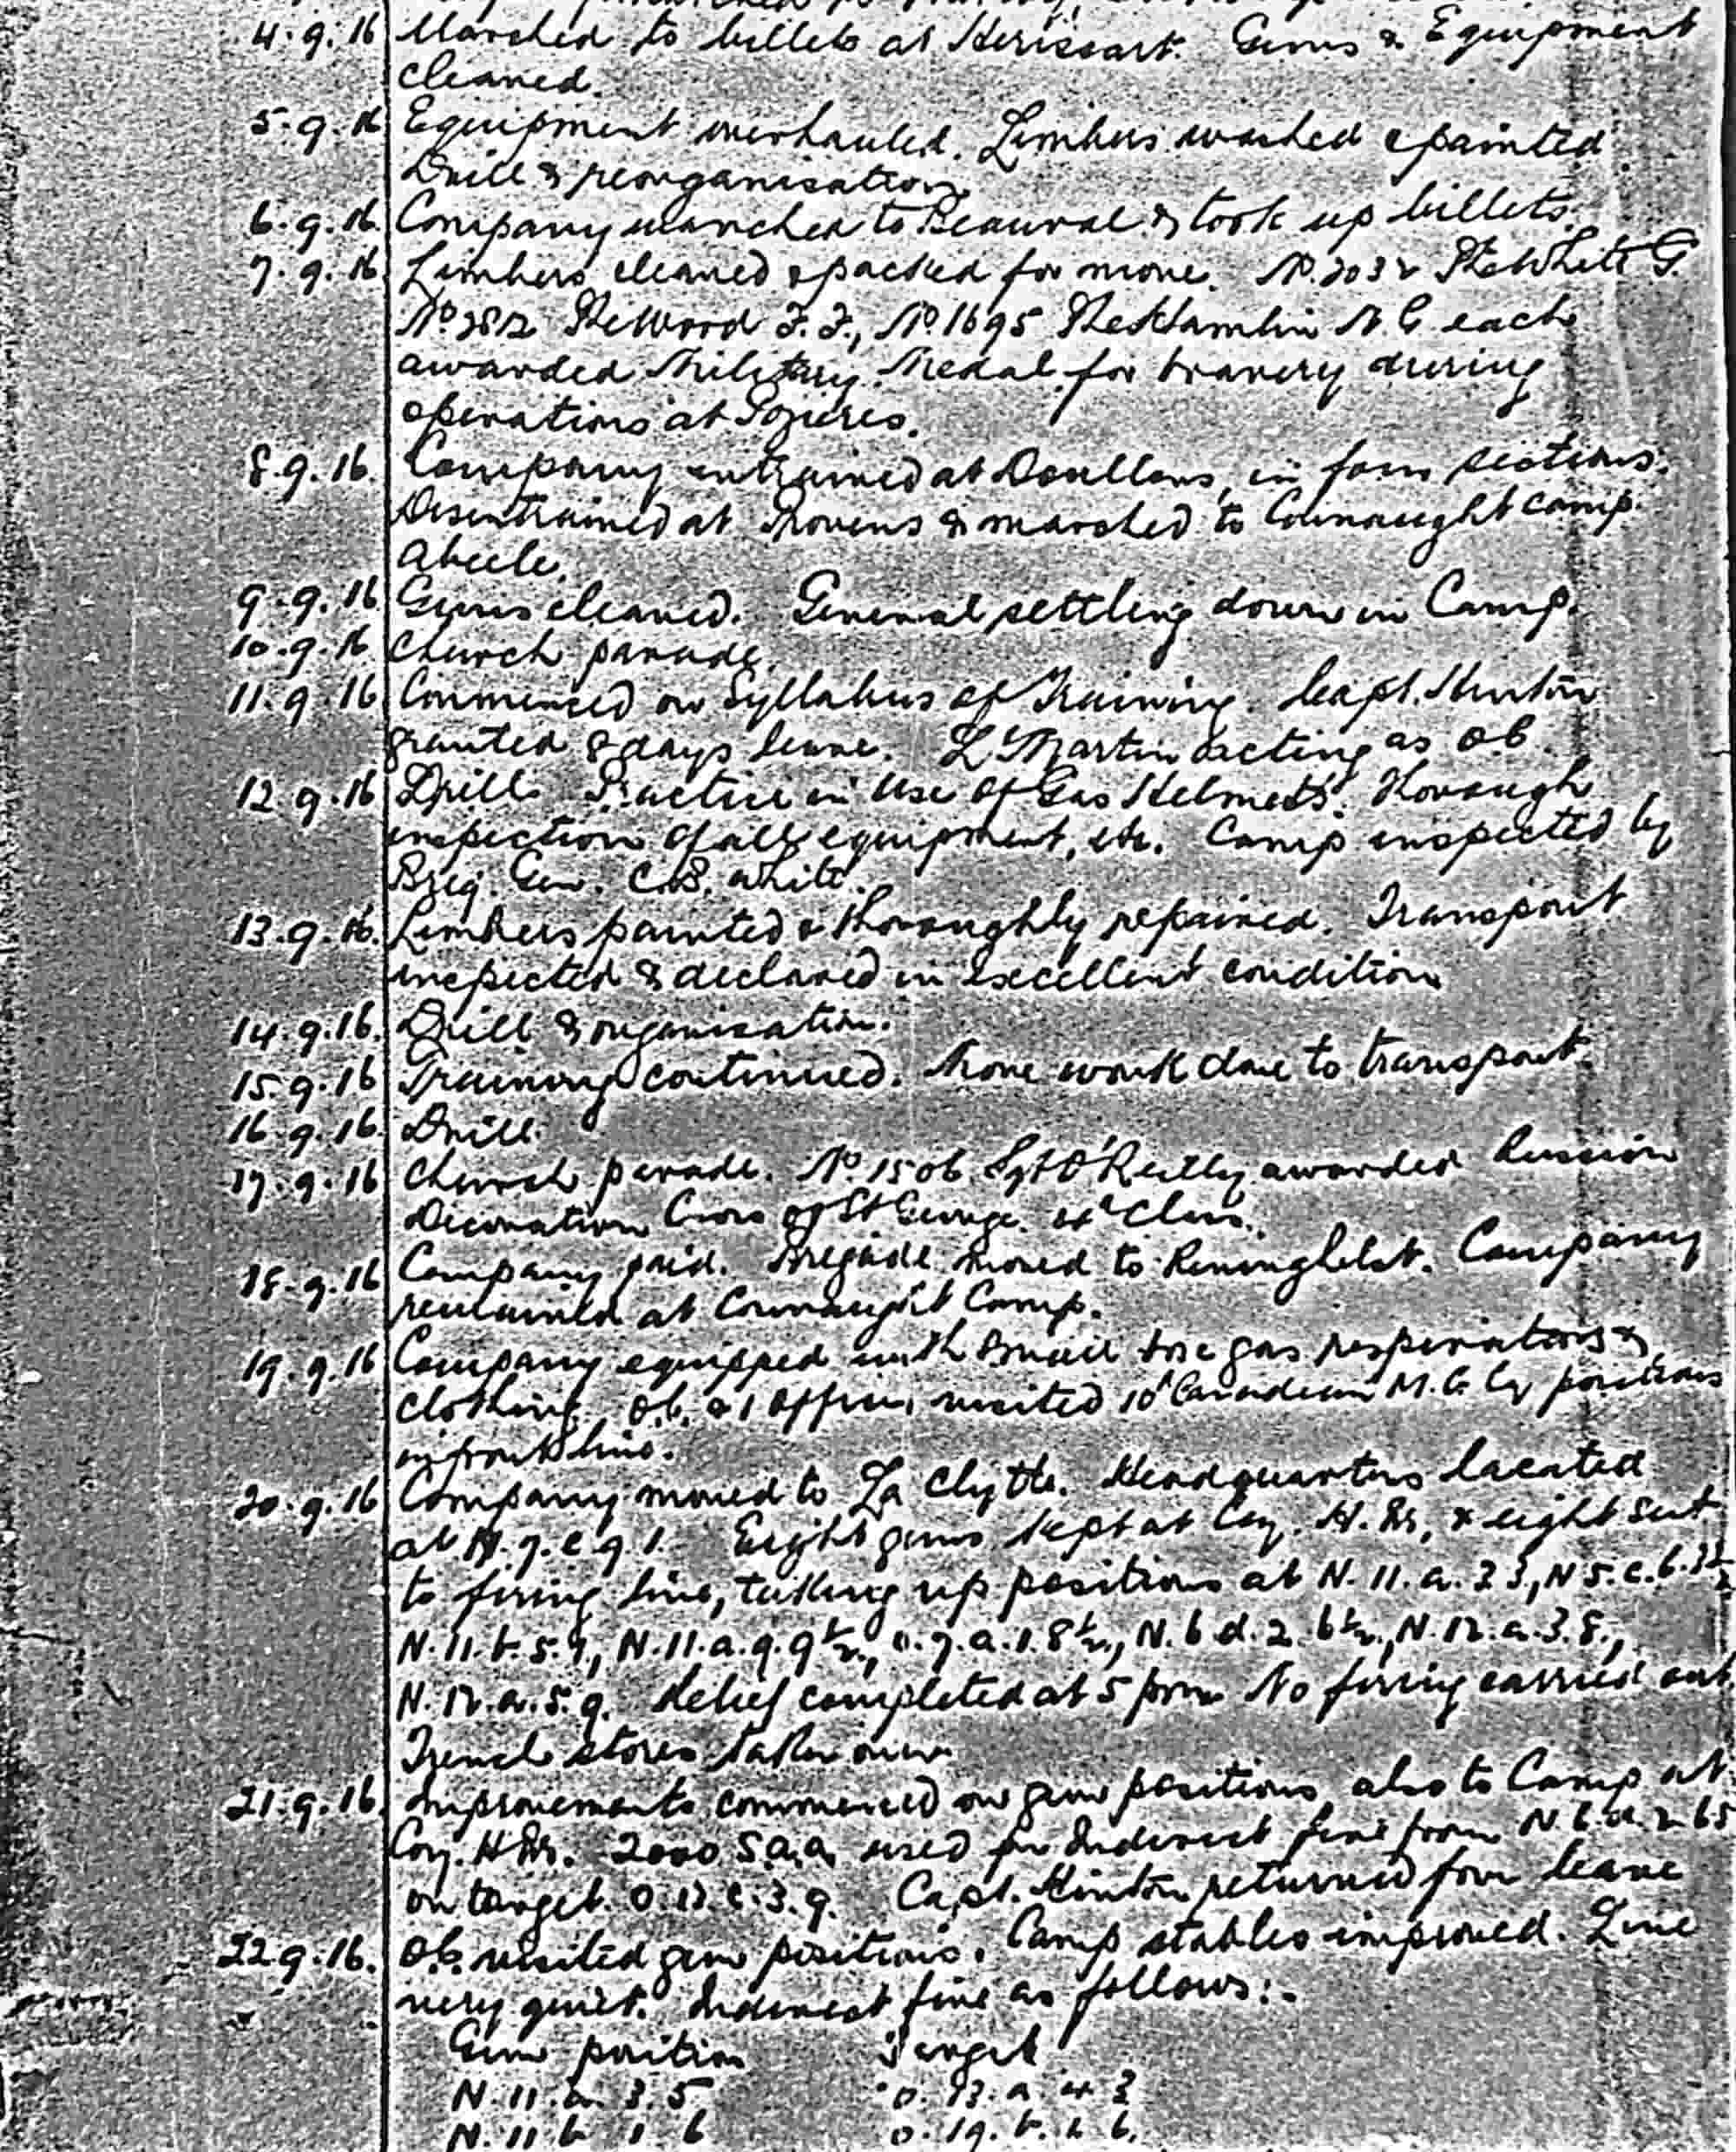 4.9.16 Marched to billets at Herissart. Guns & Equipment
cleaned.
5.9.16 Equipment overhauled. Limbers washed & painted.
Drill & reorganisation.
6.9.16 Company marched to Beauval & took up billets.
7.9.16 Limbers cleaned & packed for move. No. 2032 Pte White G.
No. Pte Wood F.F., No. 1695 Pte Hamlin N.G. each
awarded Military Medal for bravery during
operations at Pozieres.
8.9.16. Company entrained at Doullens, in four sections.
Disentrained at Provens & marched to Connaught Camp.
Abeele.
9.9.16 Guns cleaned. General settling down in Camp.
10.9.16 Church parade.
11.9.16 Commenced on Syllabus of Training. Capt. Hinton
granted 8 days leave. Lt Martin acting as O.C.
12.9.16 Drill. Practice in use of Gas Helmets. Thorough
inspection of all equipment, etc. Camp inspected by
Brig. Gen. C.B. White.
13.9.16. Limbers painted & thoroughly repaired. Transport
inspected & declared in excellent condition
14.9.16. Drill & organisation.
15.9.16 Training continued. More work done to transport.
16.9.16. Drill.
17.9.16 Church parade. No. 1506 Sgt O'Reilly awarded Russian
Decoration Cross of St George. 4th Class.
18.9.16 Company paid. Brigade moved to Reninghelst. Company
remained at Connaught Camp.
19.9.16 Company equipped with small box gas respirators &
clothing. O.C. & 1 Officer visited 10th Canadian M.G. Coy positions
in front line.
20.9.16 Company moved to La Clytte. Headquarters located
at N.7.c.9.1. Eight guns kept at Coy. H.Qrs, & eight sent
to firing line, taking up positions at N.11.a.3 3, N 5.c.6.
N.11.b.5.9, N.11.a.9.9½, O.7.a.1.8½, N.6.d.2.6½, N.12.a.3.8.,
N.12.a.5.9. Relief completed at 5 pm. No firing carried out
Trench stores taken over
21.9.16. Improvements commenced on gun positions, also to Camp at
Coy. H.Qrs. 2000 S.a.a. used for Indirect fire from N.6.d.2.
on target O.13.c.3.9. Capt. Hinton returned from leave
22.9.16. O.C. visited gun positions. Camp stables improved. Line
very quiet. Indirect fire as follows:-
Gun position Target
N.11.a.3.5 O.13.a.4 3
N.11 b 1 6 O.19.b.2 6.